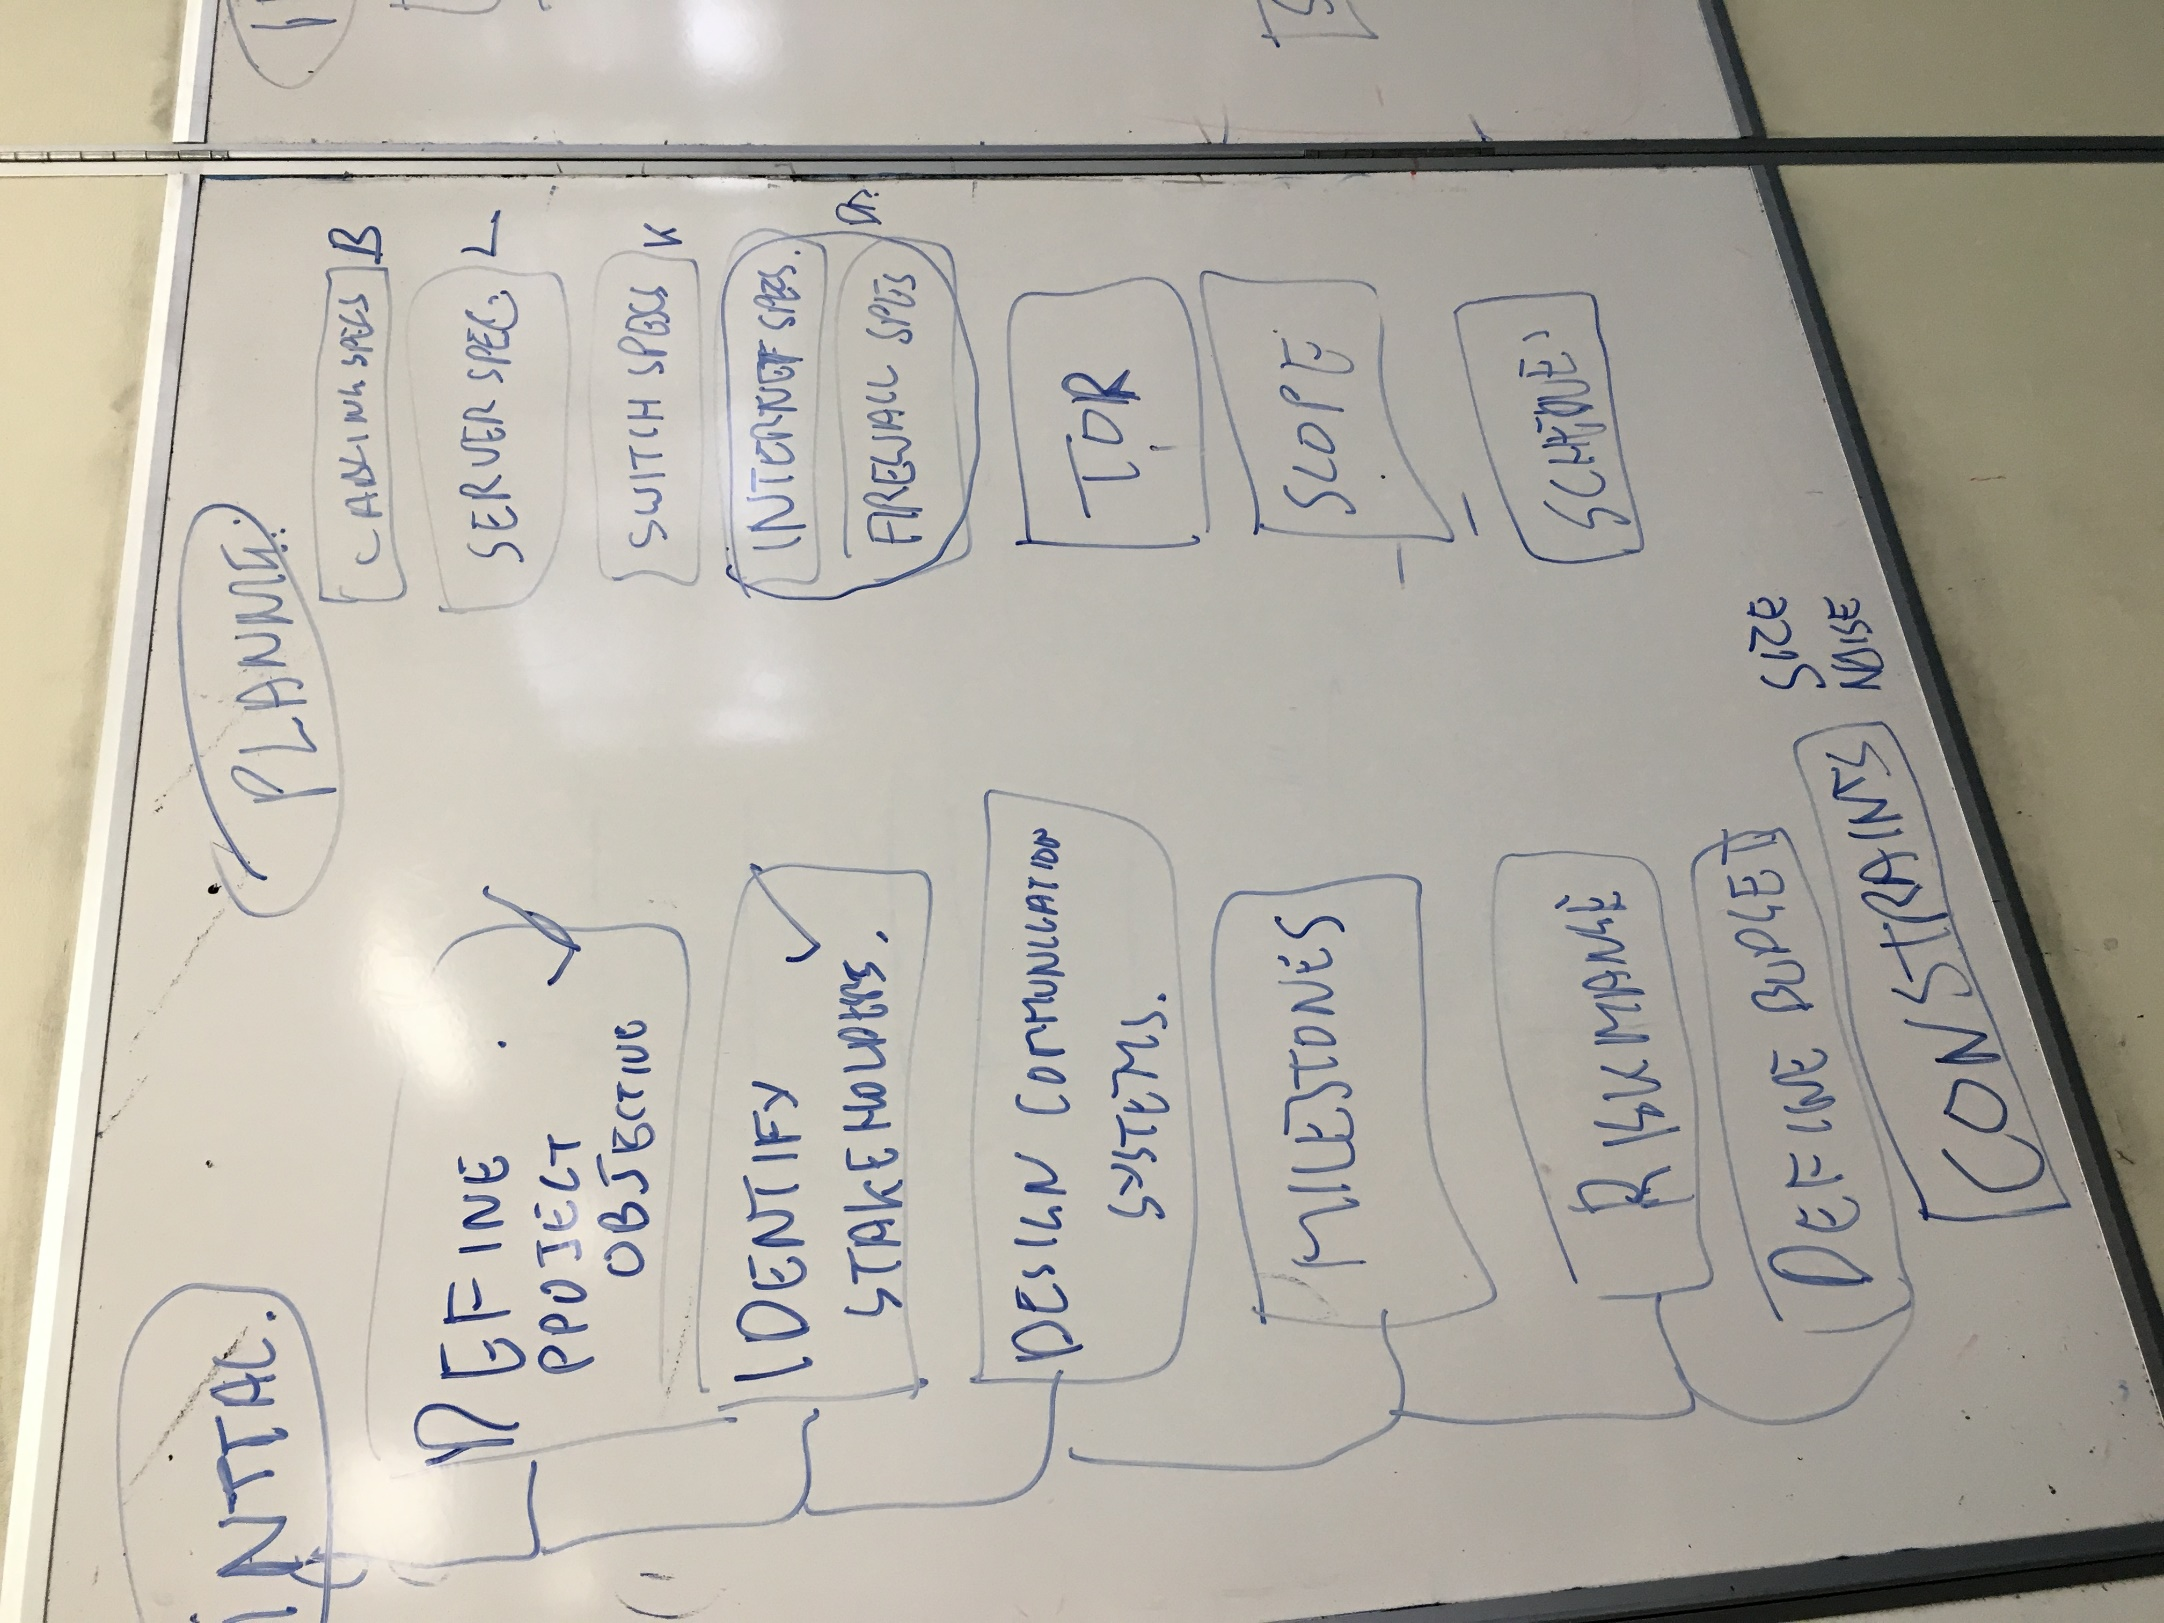 INTIAL.
DEFINE
PROJECT
OBJECTIVE
IDENTIFY
STAKEHOLDERS.
DESIGN COMMUNICATION
SYSTEMS.
MILESTONES
DEFINE BUDGET
CONSTRAINTS
SIZE
NOISE
CABLING SPECS B
SERVER SPEC. L
SWITCH SPECS K
INTERNET SPECS.
FIREWALL SPES
TOR
SCOPE